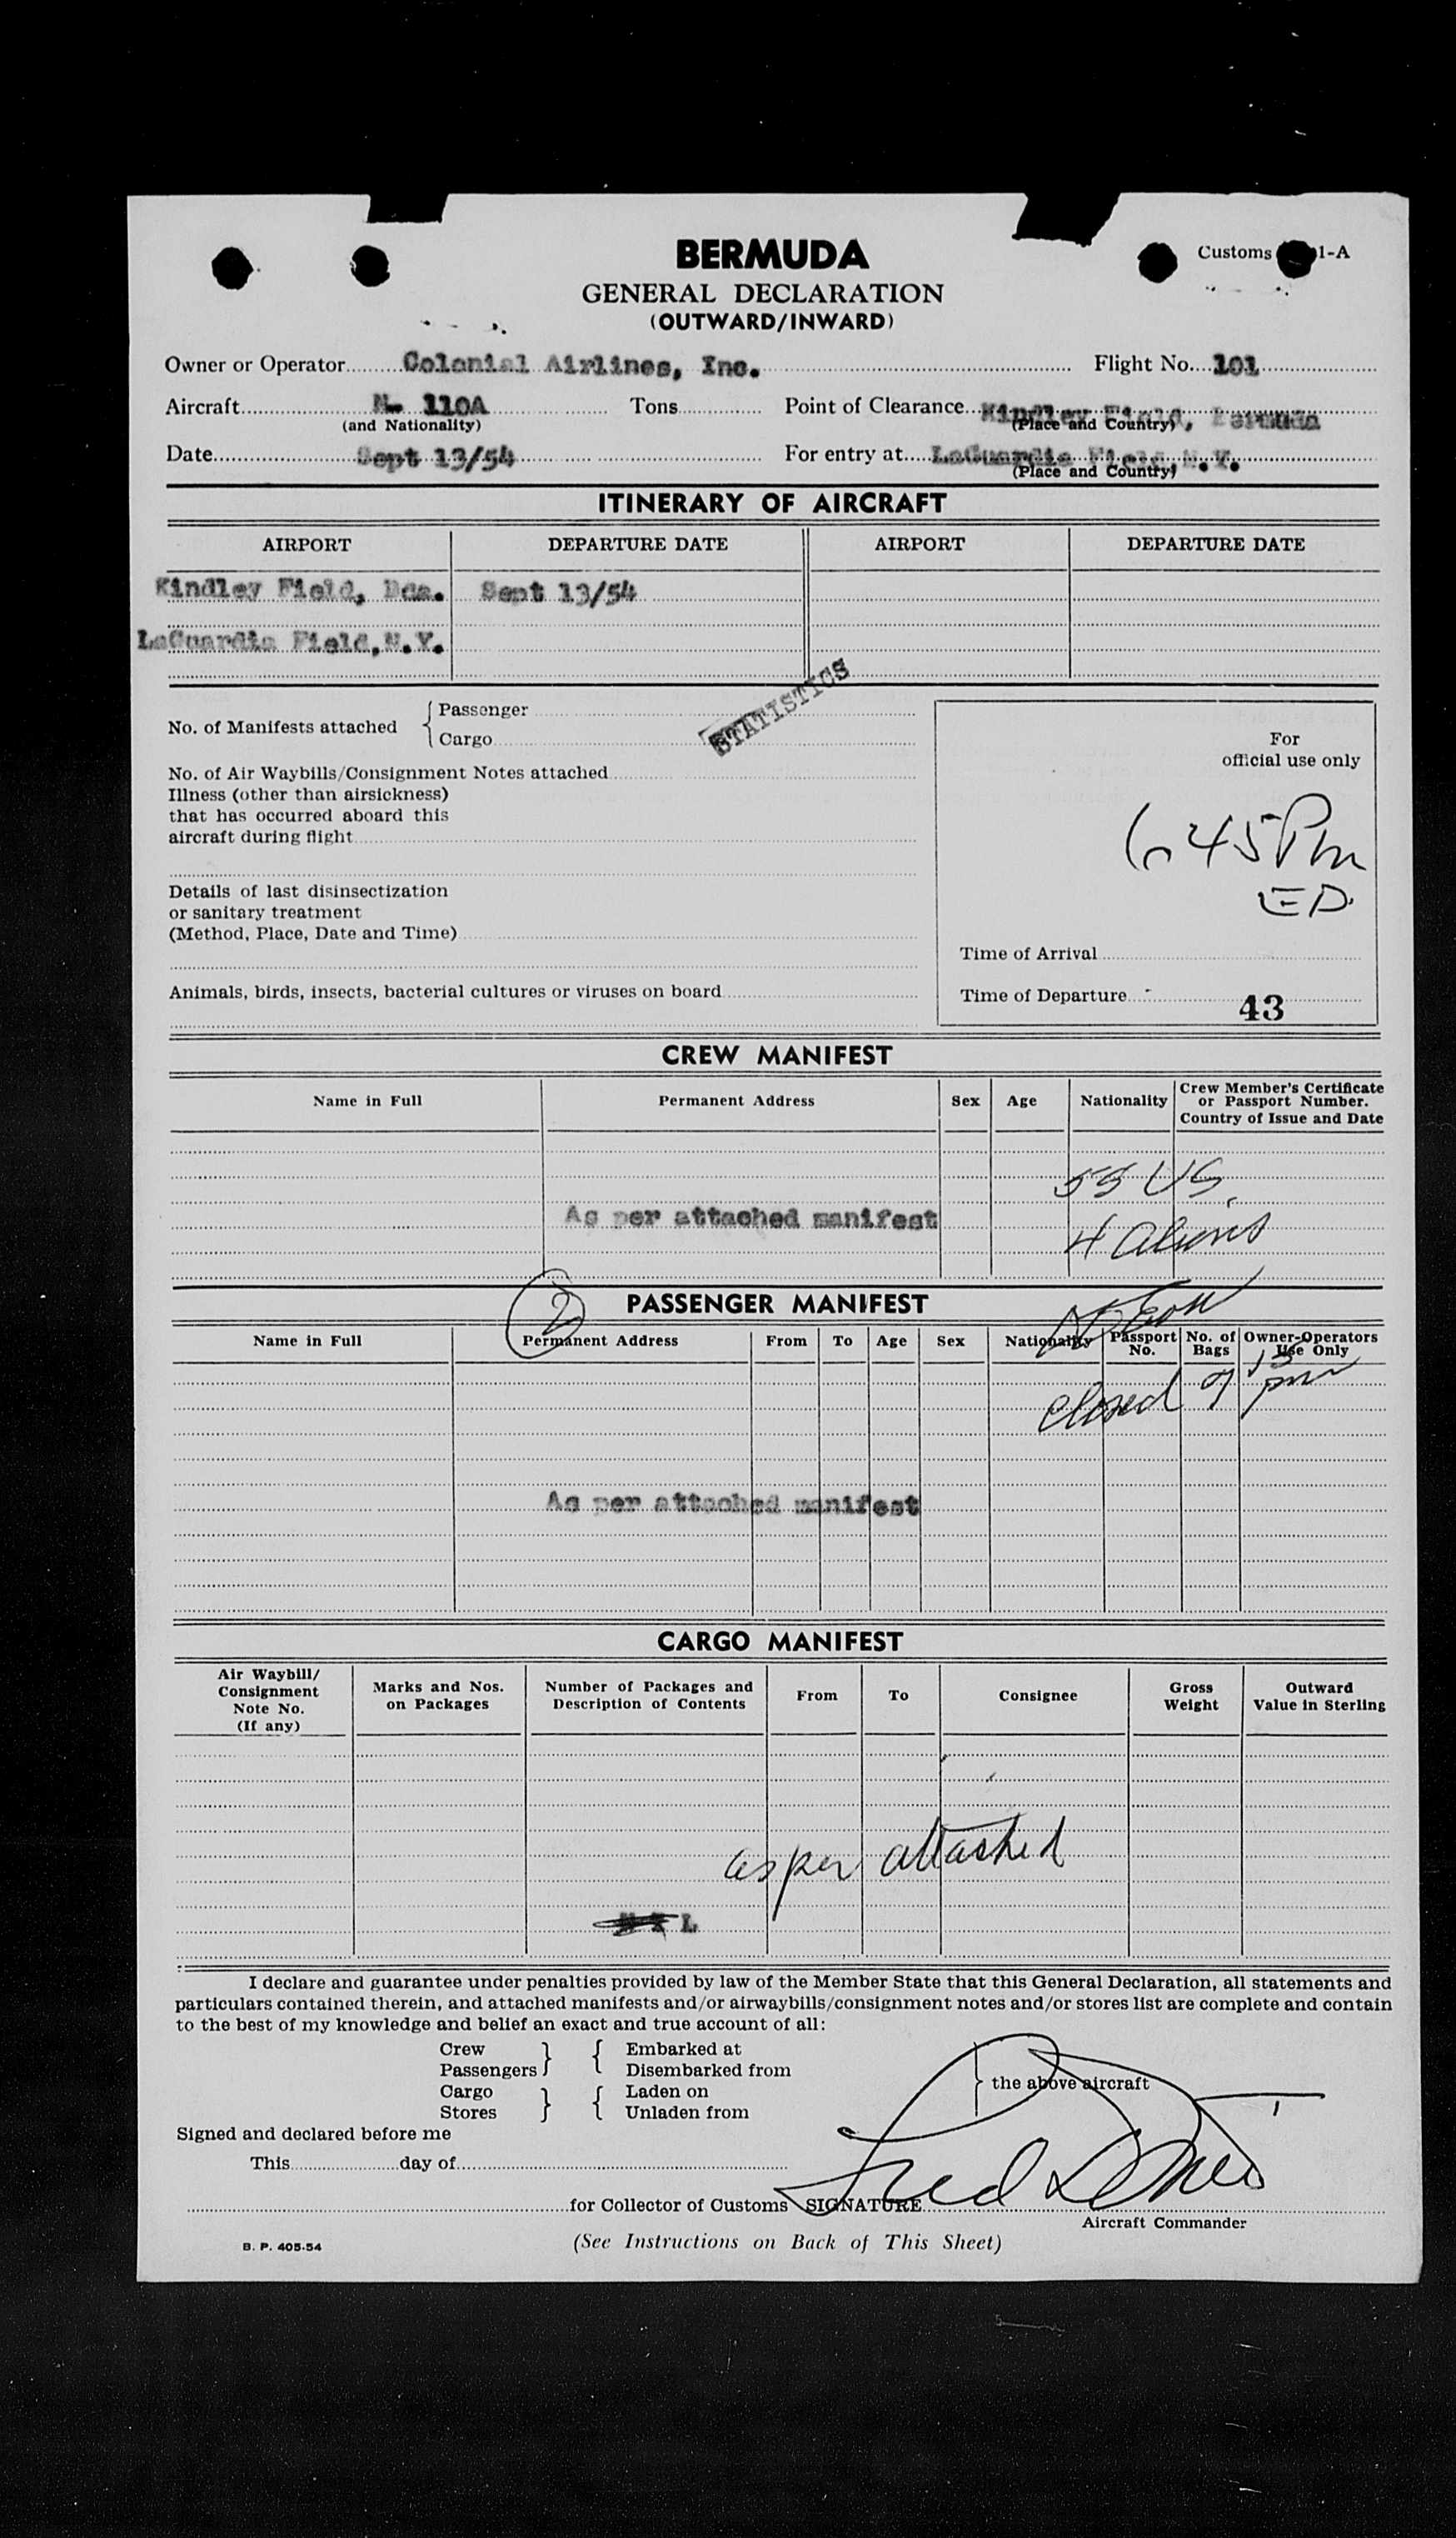 BERMUDA
Customs 1-A
GENERAL DECLARATION
(OUTWARD/INWARD)
Owner or Operator Colonial Airlines, Inc. Flight No. 101
Aircraft N- 110A Tons Point of Clearance Kindley Field, Bermuda
(and Nationality) (Place and Country)
Date Sept 13/54 For entry at LaGuardia Field, N.Y.
(Place and Country)
ITINERARY OF AIRCRAFT
AIRPORT DEPARTURE DATE AIRPORT DEPARTURE DATE
Kindley Field, Bda. Sept 13/54
LaGuardia Field, N.Y.
STATISTICS
No. of Manifests attached { Passenger
Cargo
For
official use only
No. of Air Waybills/Consignment Notes attached
Illness (other than airsickness)
that has occurred aboard this
aircraft during flight
645 Pm
ED.
Details of last disinsectization
or sanitary treatment
(Method, Place, Date and Time)
Time of Arrival
Animals, birds, insects, bacterial cultures or viruses on board
Time of Departure 43
CREW MANIFEST
Name in Full Permanent Address Sex Age Nationality Crew Member's Certificate
or Passport Number.
Country of Issue and Date
55 US.
As per attached manifest
4 aliens
2 PASSENGER MANIFEST
Name in Full Permanent Address From To Age Sex Nationality Passport No. No. of Bags Owner-Operators Use Only
closed 7 15 pm
As per attached manifest
CARGO MANIFEST
Air Waybill/
Consignment
Note No.
(If any)
Marks and Nos.
on Packages
Number of Packages and
Description of Contents
From To Consignee Gross
Weight
Outward
Value in Sterling
as per attached
N I L
I declare and guarantee under penalties provided by law of the Member State that this General Declaration, all statements and
particulars contained therein, and attached manifests and/or airwaybills/consignment notes and/or stores list are complete and contain
to the best of my knowledge and belief an exact and true account of all:
Crew } { Embarked at
Passengers Disembarked from
} the above aircraft
Cargo } { Laden on
Stores Unladen from
Signed and declared before me
This day of
for Collector of Customs SIGNATURE Fred
Aircraft Commander
B. P. 405-54
(See Instructions on Back of This Sheet)